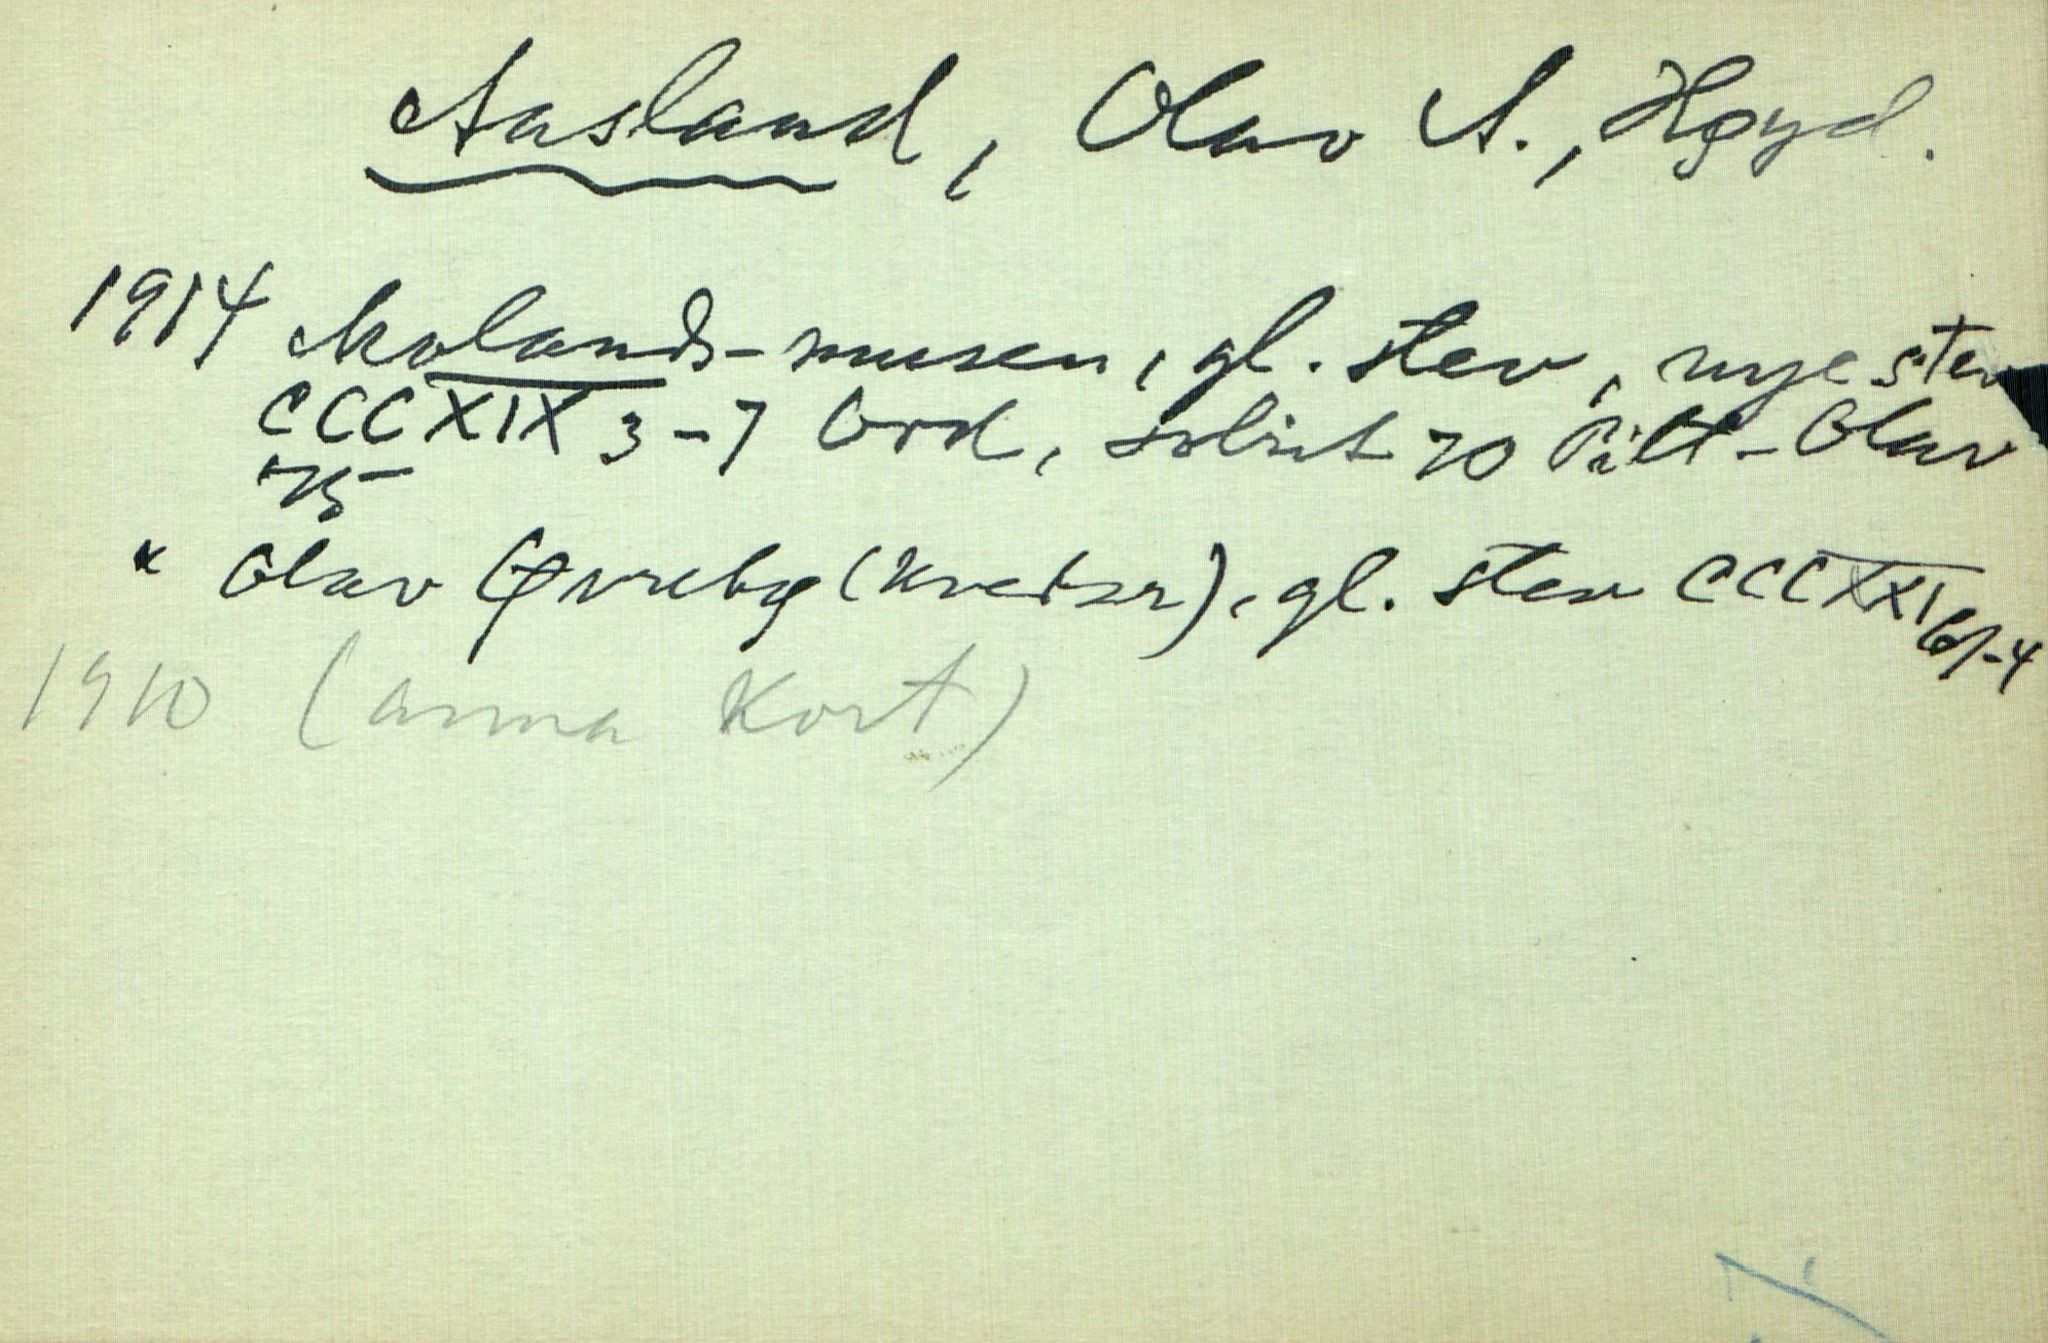 Aasland, Olav A., Høyd.
1914 Molands-musen, gl. stev, nye stev
CCCXIX 3-7 Ord, solist 70 Pilt-Olav
75
* Olav Øvrebø (kveðer), gl. stev CCCXXI 6/-4
1910 (anna Kort)